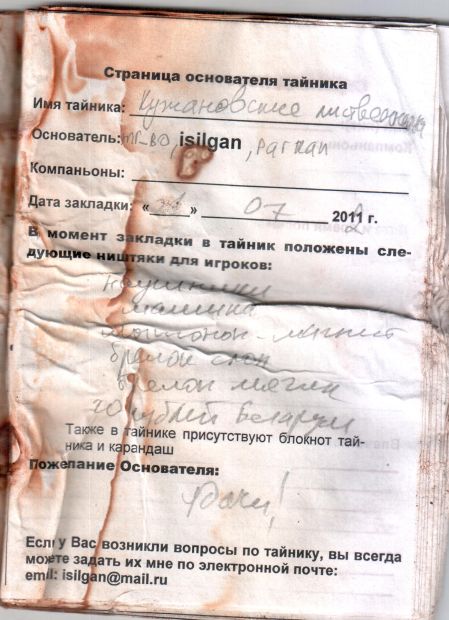 Страница основателя тайника
Имя тайника: Кужановские лиственницы
Основатель: mr-bo, isilgan, parman
Компаньоны:
Дата закладки: « » 07 2011 г.
В момент закладки в тайник положены сле-
дующие ништяки для игроков:
наушники
машина
магнит
брелок слон
брелок мячик
20 рублей Беларуси
Также в тайнике присутствуют блокнот тай-
ника и карандаш
Пожелание Основателя:
Удачи!
Если у Вас возникли вопросы по тайнику, вы всегда
можете задать их мне по электронной почте:
email: isilgan@mail.ru